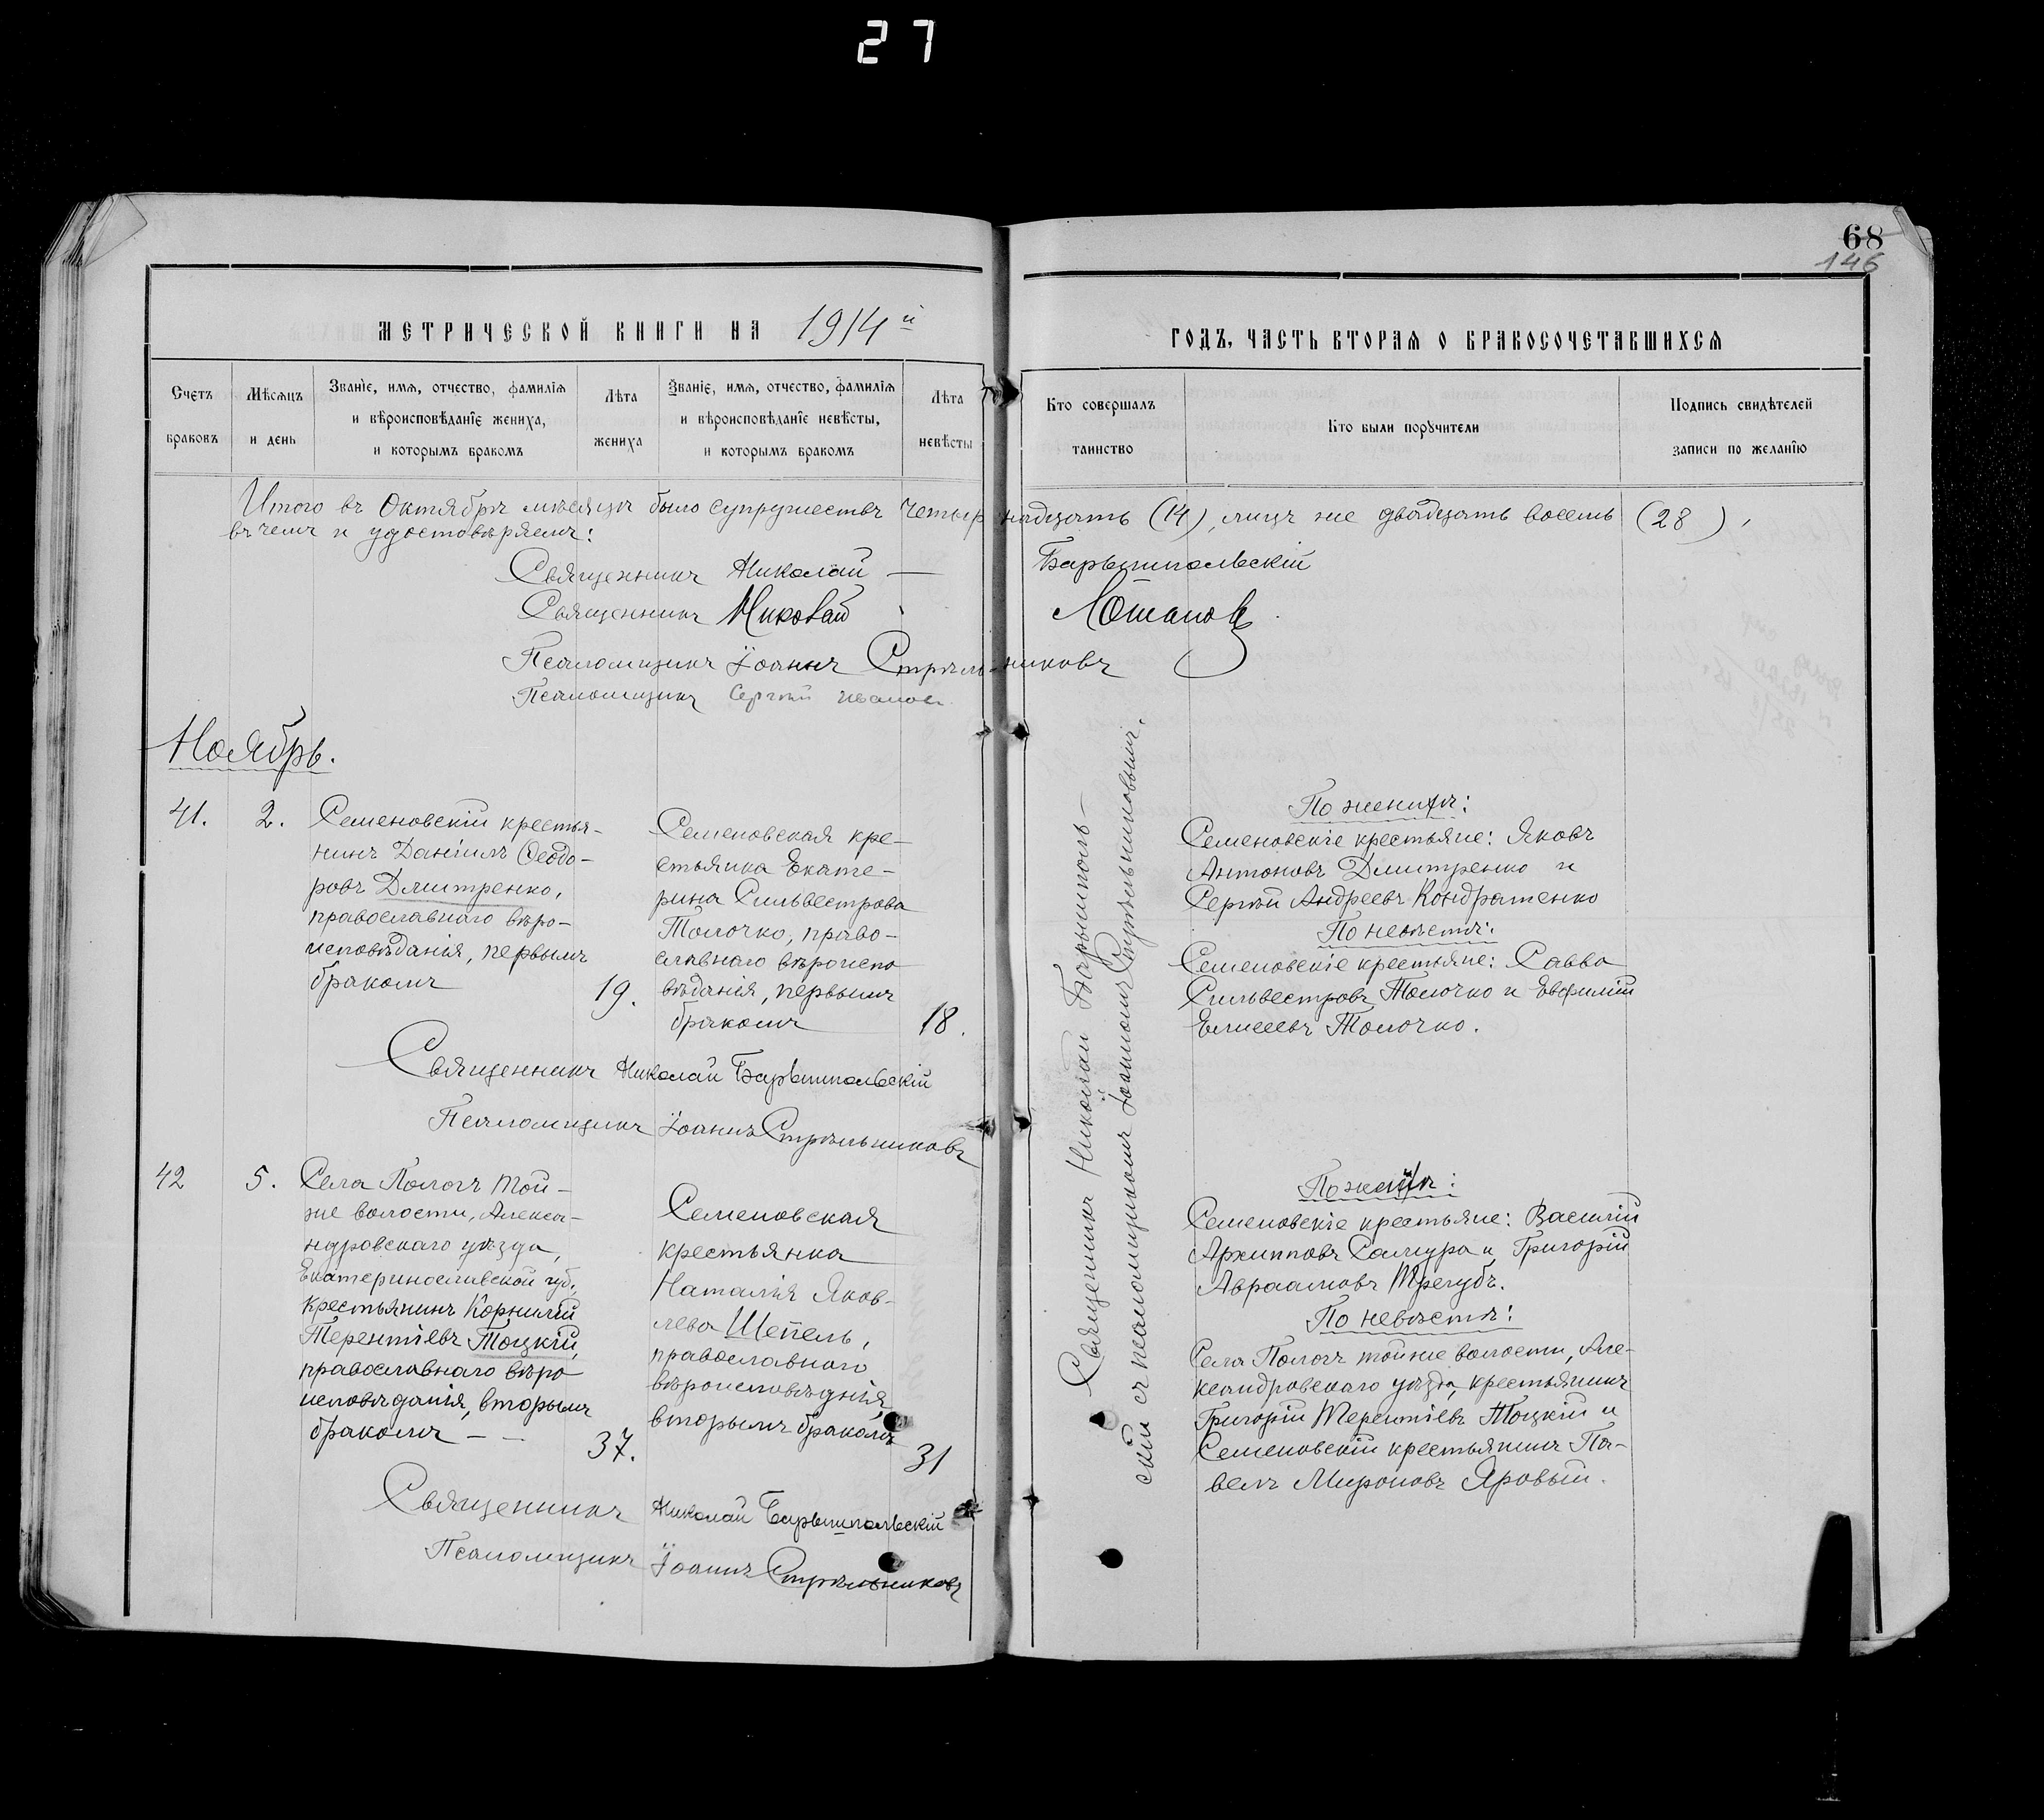 27
68
146
МЕТРИЧЕСКОЙ КНИГИ НА 1914й
ГОДЪ, ЧАСТЬ ВТОРАЯ О БРАКОСОЧЕТАВШИХСЯ
Счетъ браковъ
Мѣсяцъ и день
Званіе, имя, отчество, фамилія
и вѣроисповѣданіе жениха,
и которымъ бракомъ
Лѣта жениха
Званіе, имя, отчество, фамилія
и вѣроисповѣданіе невѣсты,
и которымъ бракомъ
Лѣта невѣсты
Кто совершалъ
таинство
Кто были поручители
Подпись свидѣтелей
записи по желанію
Итого въ Октябрѣ мѣсяцѣ было супружествъ четырнадцать (14), лицъ же двадцать восемь (28),
въ чемъ и удостовѣряемъ:
Священникъ Николай — Барышпольскій
Священникъ Николай Лошановъ
Псаломщикъ Іоаннъ Стрѣльниковъ
Псаломщикъ Сергѣй Ивановъ
Ноябрь.
41.
2.
Семеновскій крестья-
нинъ Даніилъ Ѳеодо-
ровъ Дмитренко,
православнаго вѣро-
исповѣданія, первымъ
бракомъ
19.
Семеновская кре-
стьянка Екате-
рина Сильвестрова
Толочко, право-
славнаго вѣроиспо
вѣданія, первымъ
бракомъ
18.
Священникъ Николай Барышполь-
скій съ псаломщикомъ Іоанномъ Стрѣльниковымъ.
По женихѣ:
Семеновскіе крестьяне: Яковъ
Антоновъ Дмитренко и
Сергѣй Андреевъ Кондратенко
По невѣстѣ:
Семеновскіе крестьяне: Савва
Сильвестровъ Толочко и Евфимій
Елисеевъ Толочко.
Священникъ Николай Барышпольскій
Псаломщикъ Іоаннъ Стрѣльниковъ
42
5.
Села Пологъ той-
же волости, Алекса-
ндровскаго уѣзда,
Екатеринославской губ.,
крестьянинъ Корнилій
Терентіевъ Тоцкій,
православнаго вѣро
исповѣданія, вторымъ
бракомъ — —
37.
Семеновская
крестьянка
Наталія Яков-
лева Шепель,
православнаго
вѣроисповѣднія,
вторымъ бракомъ
31
По женихѣ:
Семеновскіе крестьяне: Василій
Архиповъ Самура и Григорій
Авраамовъ Трегубъ.
По невѣстѣ:
Села Пологъ той же волости, Але-
ксандровскаго уѣзда, крестьянинъ
Григорій Терентіевъ Тоцкій и
Семеновскій крестьянинъ Па-
велъ Мироновъ Яровый.
Священникъ Николай Барышпольскій
Псаломщикъ Іоаннъ Стрѣльниковъ